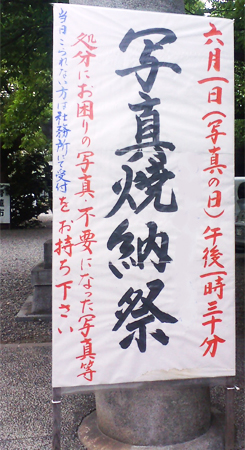 六月一日(写真の日)午後一時三十分
写真焼納祭
処分にお困りの写真・不要になった写真等
をお持ち下さい
当日こられない方は社務所にて受付